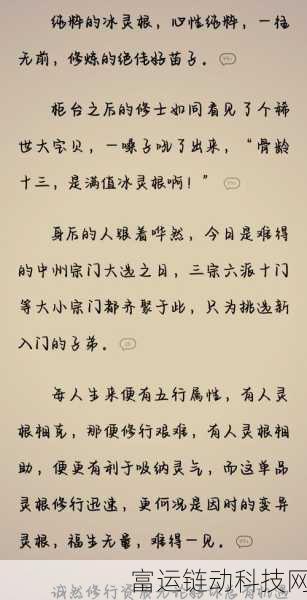 纯粹的冰灵根，心性纯粹，一往
无前，修炼的绝佳好苗子。
柜台之后的修士如同看见了个稀
世大宝贝，一嗓子吼了出来，“骨龄
十三，是满值冰灵根啊！”
身后的人跟着哗然，今日是难得
的中州宗门大选之日，三宗六派十门
等大小宗门都齐聚于此，只为挑选新
入门的子弟。
每人生来便有五行属性，有人灵
根相克，那便修行艰难，有人灵根相
助，便更有利于吸纳灵气，而这单品
灵根修行迅速，更何况是因时的变异
灵根，福生无量，难得一见。
诚然修行资质
富运链动科技网